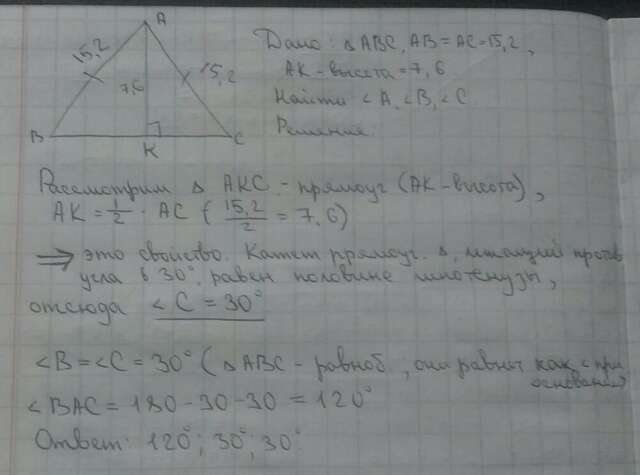 A
15,2
15,2
7,6
B
K
C
Дано: △ ABC, AB = AC = 15,2,
AK - высота = 7,6.
Найти ∠A, ∠B, ∠C
Решение.
Рассмотрим △ AKC - прямоуг (AK - высота),
AK = 1/2 · AC (15,2/2 = 7,6)
⇒ это свойство. Катет прямоуг. △, лежащий против
угла в 30°, равен половине гипотенузы,
отсюда ∠C = 30°
∠B = ∠C = 30° (△ ABC - равноб, они равны как ∠ при
основании)
∠BAC = 180 - 30 - 30 = 120°
Ответ: 120°; 30°; 30°